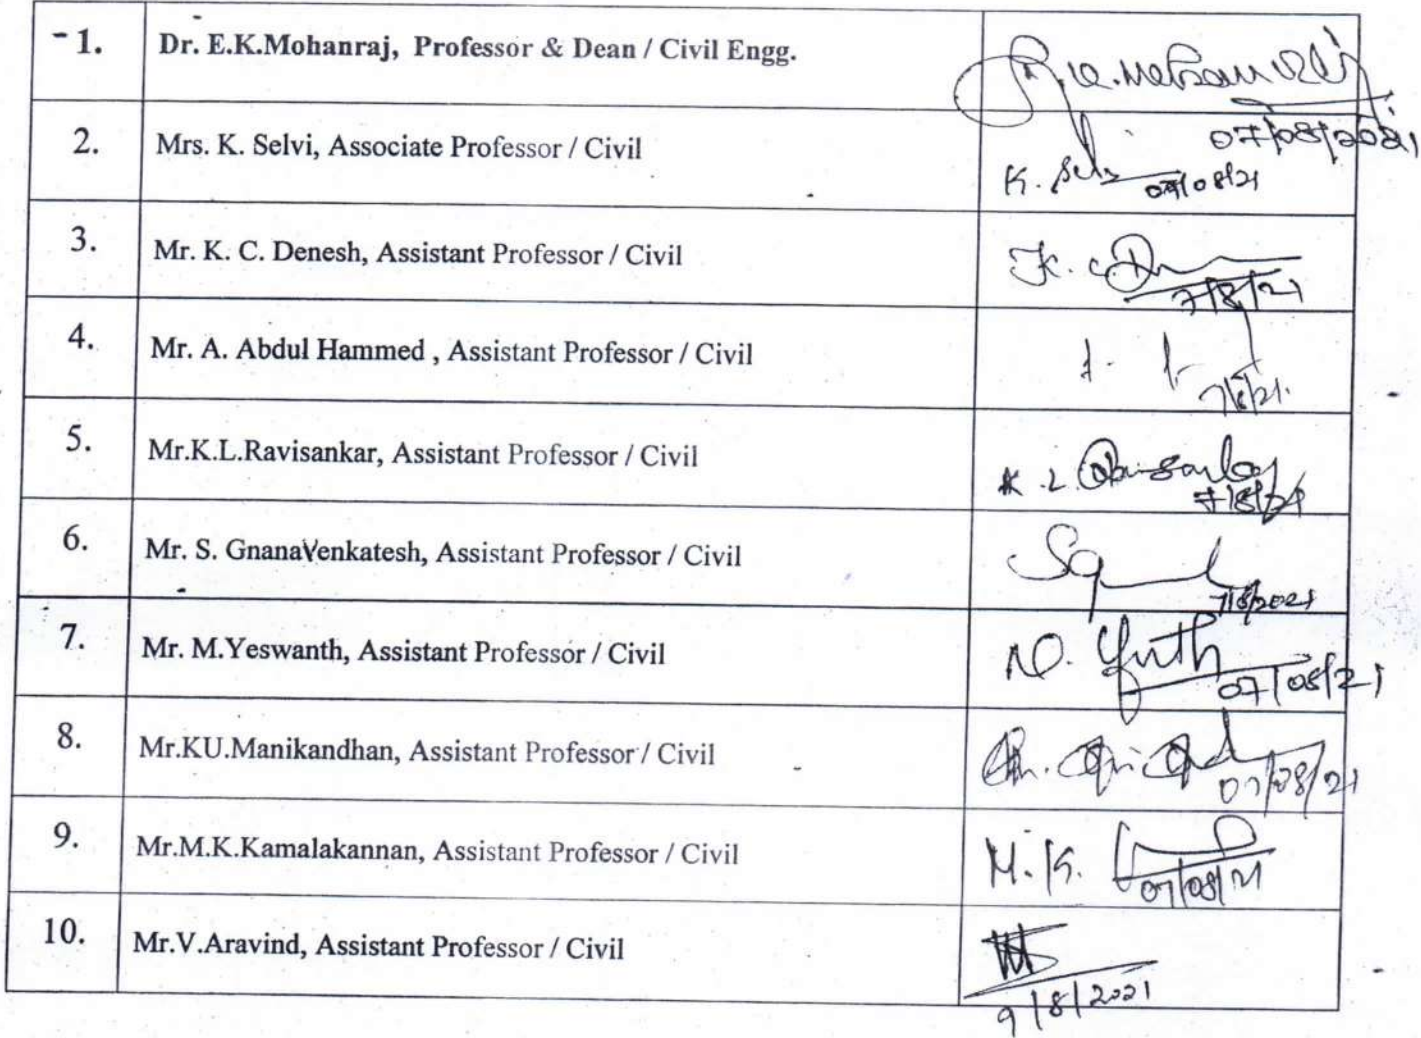 1. Dr. E.K.Mohanraj, Professor & Dean / Civil Engg.
07/08/2021
2. Mrs. K. Selvi, Associate Professor / Civil
K. Selvi 07/08/21
3. Mr. K. C. Denesh, Assistant Professor / Civil
K. C.
7/8/21
4. Mr. A. Abdul Hammed , Assistant Professor / Civil
7/8/21.
5. Mr.K.L.Ravisankar, Assistant Professor / Civil
K.L. Ravisankar
7/8/21
6. Mr. S. GnanaVenkatesh, Assistant Professor / Civil
7/8/2021
7. Mr. M.Yeswanth, Assistant Professor / Civil
07/08/21
8. Mr.KU.Manikandhan, Assistant Professor / Civil
07/08/21
9. Mr.M.K.Kamalakannan, Assistant Professor / Civil
M.K.
07/08/21
10. Mr.V.Aravind, Assistant Professor / Civil
9/8/2021